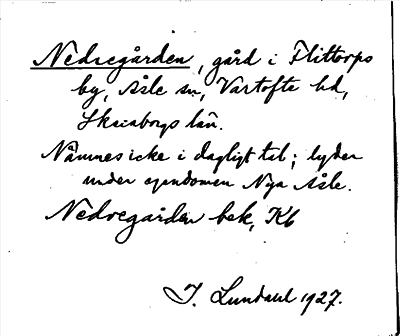 Nedregården, gård i Flittorps
by, Åsle sn, Vartofte hd,
Skaraborgs län.
Nämnes icke i dagligt tal; lyder
under egendomen Nya Åsle.
Nedregården bek, Kb
J. Lundahl 1927.